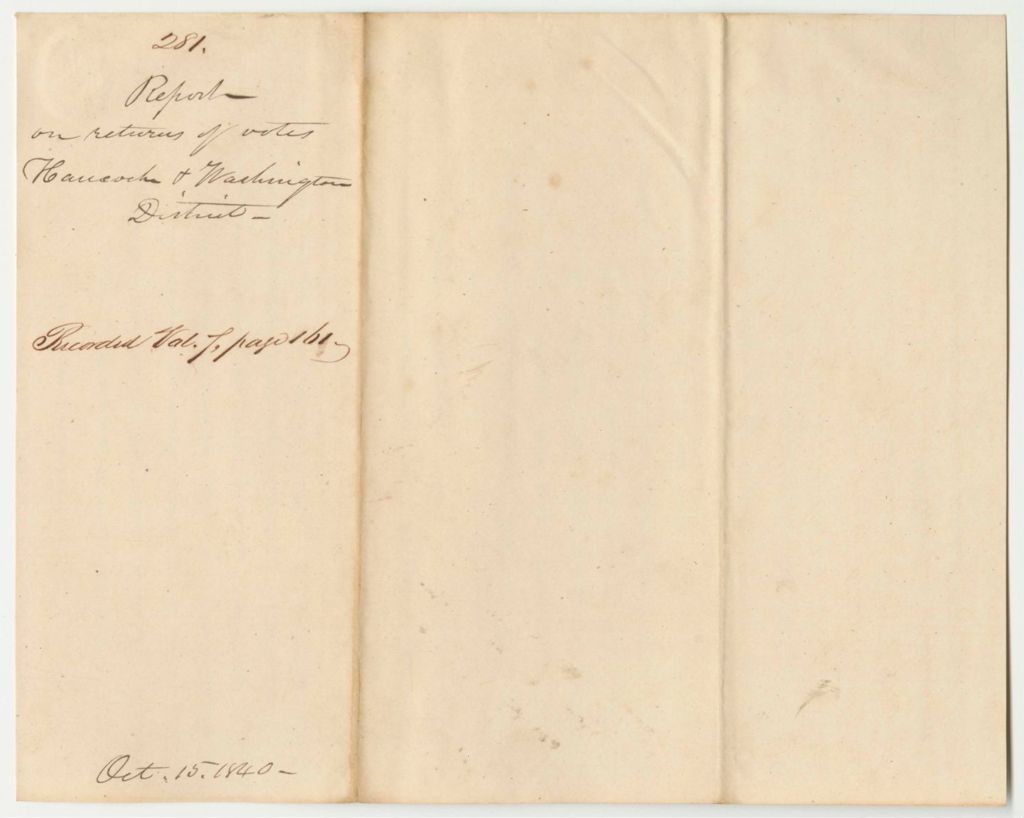 281.
Report
on returns of votes
Hancock & Washington
District -
Recorded Vol. 7, page 161
Oct. 15. 1840 -